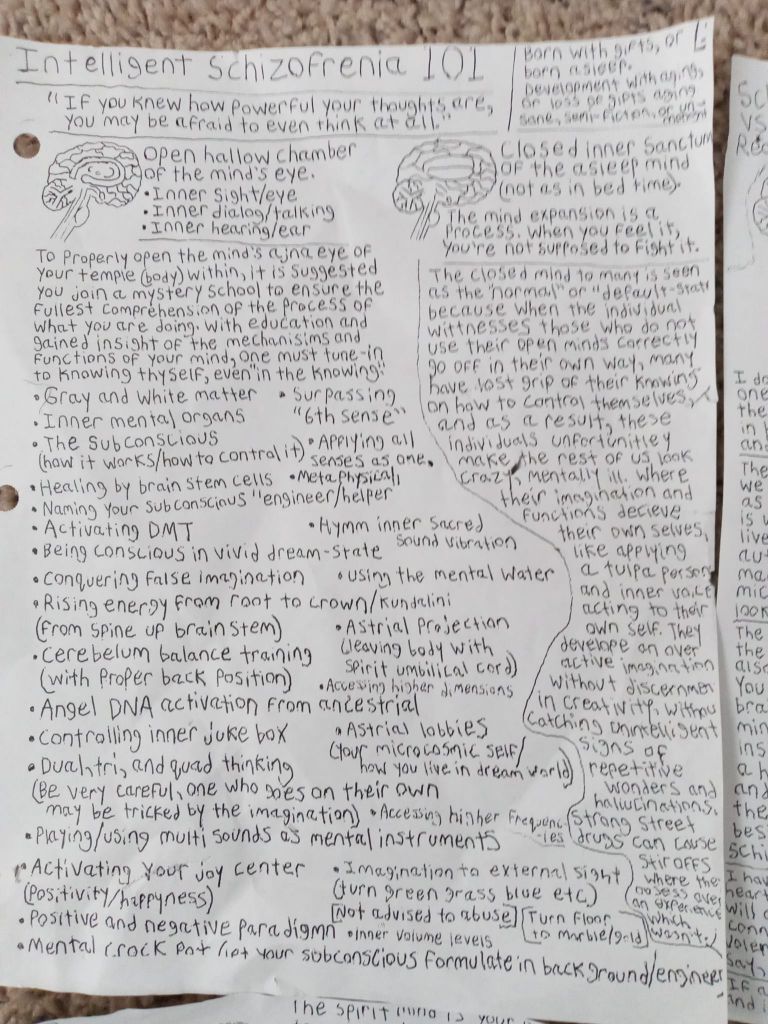 Intelligent Schizofrenia 101
Born with gifts, or
born asleep.
Development with aging,
or loss of gifts aging
sane, semi-fiction, or un-
"If you knew how powerful your thoughts are,
you may be afraid to even think at all."
Open hallow chamber
of the mind's eye.
• Inner sight/eye
• Inner dialog/talking
• Inner hearing/ear
Closed inner sanctum
of the asleep mind
(not as in bed time).
The mind expansion is a
process. When you feel it,
you're not supposed to fight it.
To properly open the mind's ajna eye of
your temple (body) within, it is suggested
you join a mystery school to ensure the
fullest comprehension of the process of
what you are doing. With education and
gained insight of the mechanisims and
functions of your mind, one must tune-in
to knowing thyself, even "in the knowing."
• Gray and white matter
• Surpassing
"6th sense"
• Inner mental organs
• The subconscious
(how it works/how to control it)
• Applying all
senses as one.
• Healing by brain stem cells
• Metaphysical
• Naming your subconscious "engineer/helper
• Activating DMT
• Hymm inner sacred
sound vibration
• Being conscious in vivid dream-state
• Conquering false imagination
• using the mental water
• Rising energy from root to crown/kundalini
(from spine up brain stem)
• Astrial projection
(leaving body with
spirit umbilical cord)
• Cerebelum balance training
(with proper back position)
• Accessing higher dimensions
• Angel DNA activation from ancestrial
• Controlling inner juke box
• Astrial lobbies
(your microcosmic self/
how you live in dream world)
• Dual, tri, and quad thinking
(Be very careful, one who goes on their own
may be tricked by the imagination)
• Accessing higher frequenc-
ies
• Playing/using multi sounds as mental instruments
• Activating your joy center
(positivity/happyness)
• Imagination to external sight
(turn green grass blue etc.)
[Not advised to abuse]
[Turn floor
to marble/gold]
• Positive and negative paradigmn
• inner volume levels
• Mental crock pot let your subconscious formulate in background/engineer
The closed mind to many is seen
as the "normal" or "default-state
because when the individual
wittnesses those who do not
use their open minds correctly
go off in their own way, many
have lost grip of their knowing
on how to control themselves,
and as a result, these
individuals unfortunitley
make the rest of us look
crazy, mentally ill. Where
their imagination and
functions decieve
their own selves,
like applying
a tulpa person
and inner voice
acting to their
own self. They
develope an over
active imagination
without discernmen
in creativity, withou
catching unintelligent
signs of
repetitive
wonders and
hallucinations.
Strong street
drugs can cause
stir offs
where the
obsess over
an experience
which
wasn't.
Sc
vs
Re
I do
one
the
in
and
The
we
as
is
live
au
ma
mic
look
The
the
also
You
bra
min
ins
a h
and
the
bes
Schi
I hav
heart
will
conn
volen
say,
If a
and i
The spirit mind is your